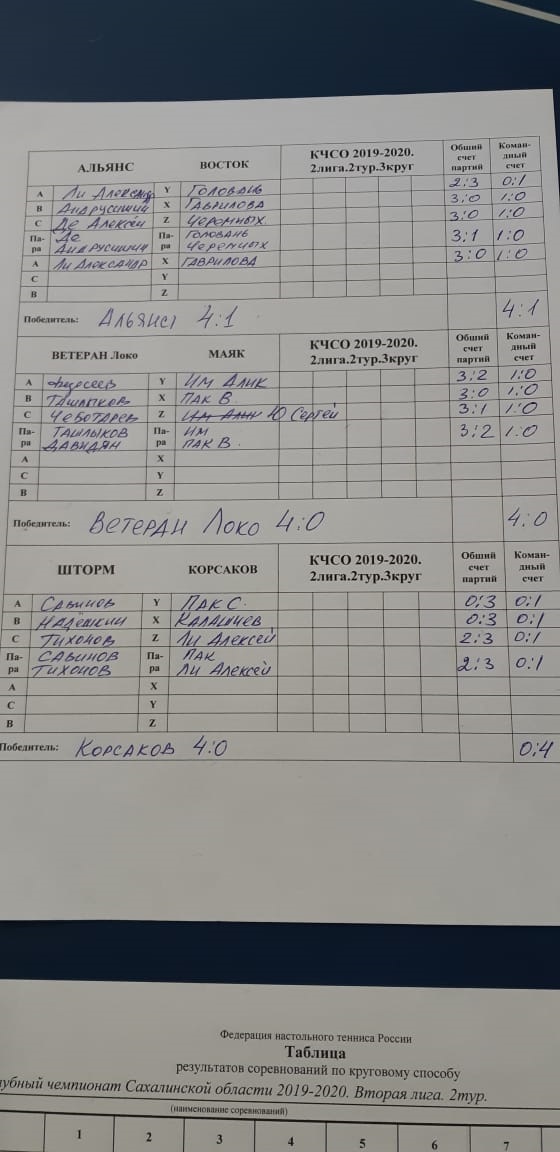 АЛЬЯНС ВОСТОК КЧСО 2019-2020. 2лига.2тур.3круг Общий счет партий Коман-дный счет
A Ли Александр Y Головань 2:3 0:1
B Андрусишин X Гаврилова 3:0 1:0
C Де Алексей Z Черемных 3:0 1:0
Па-ра Де Андрусишин Па-ра Головань Черемных 3:1 1:0
A Ли Александр X Гаврилова 3:0 1:0
C Y
B Z
Победитель: Альянс 4:1 4:1
ВЕТЕРАН Локо МАЯК КЧСО 2019-2020. 2лига.2тур.3круг Общий счет партий Коман-дный счет
A Y Им Алик 3:2 1:0
B Ташлыков X Пак В 3:0 1:0
C Чеботарев Z Им Алик Ю Сергей 3:1 1:0
Па-ра Ташлыков Давидян Па-ра Им Пак В. 3:2 1:0
A X
C Y
B Z
Победитель: Ветеран Локо 4:0 4:0
ШТОРМ КОРСАКОВ КЧСО 2019-2020. 2лига.2тур.3круг Общий счет партий Коман-дный счет
A Савинов Y Пак С. 0:3 0:1
B Надёшкин X Калачиев 0:3 0:1
C Тихонов Z Ли Алексей 2:3 0:1
Па-ра Савинов Тихонов Па-ра Пак Ли Алексей 2:3 0:1
A X
C Y
B Z
Победитель: Корсаков 4:0 0:4
Федерация настольного тенниса России
Таблица
результатов соревнований по круговому способу
лубный чемпионат Сахалинской области 2019-2020. Вторая лига. 2тур.
(наименование соревнований)
1 2 3 4 5 6 7